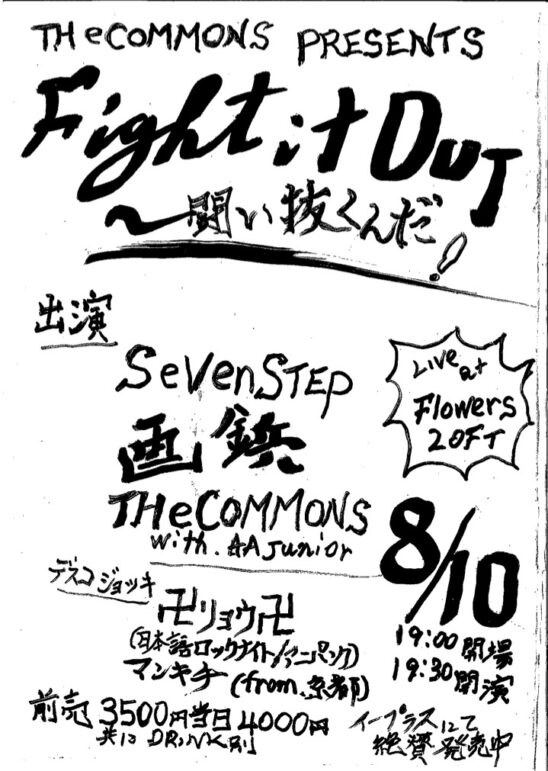 THeCOMMONS PRESENTS
Fight it OUT
〜闘い抜くんだ!
出演
SeVenSTEP
画鋲
THeCOMMONS
with. AAJunior
Live at
Flowers
20FT
8/10
19:00 開場
19:30 開演
デスコジョッキ
卍リョウ卍
(日本語ロックナイト/アニパンク)
マンキチ(from.京都)
前売 3500円当日4000円
共に DRINK別
イープラスにて
絶賛発売中